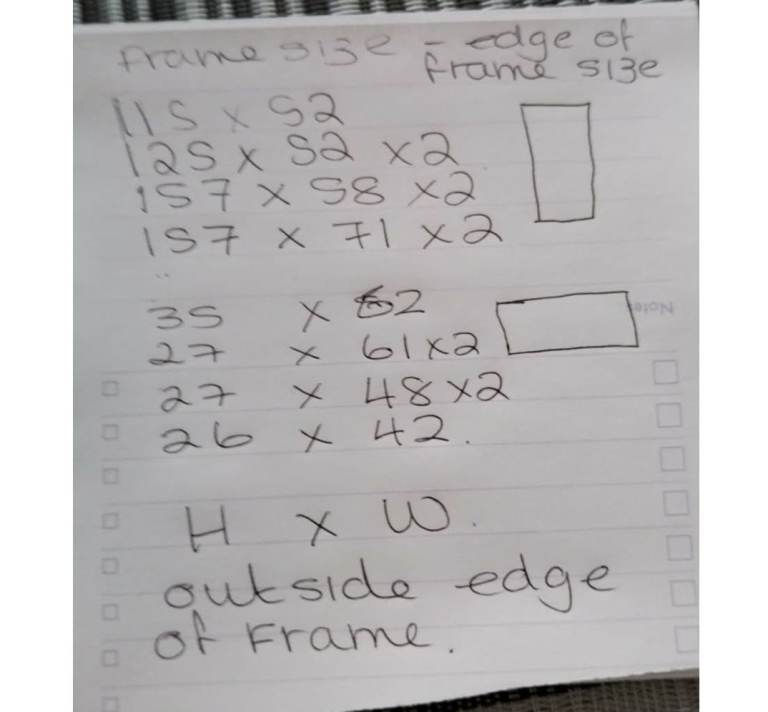 Frame size - edge of
frame size
115 x 52
125 x 52 x2
157 x 58 x2
157 x 71 x2
35 x 62
27 x 61x2
27 x 48x2
26 x 42.
H x W.
outside edge
of Frame.